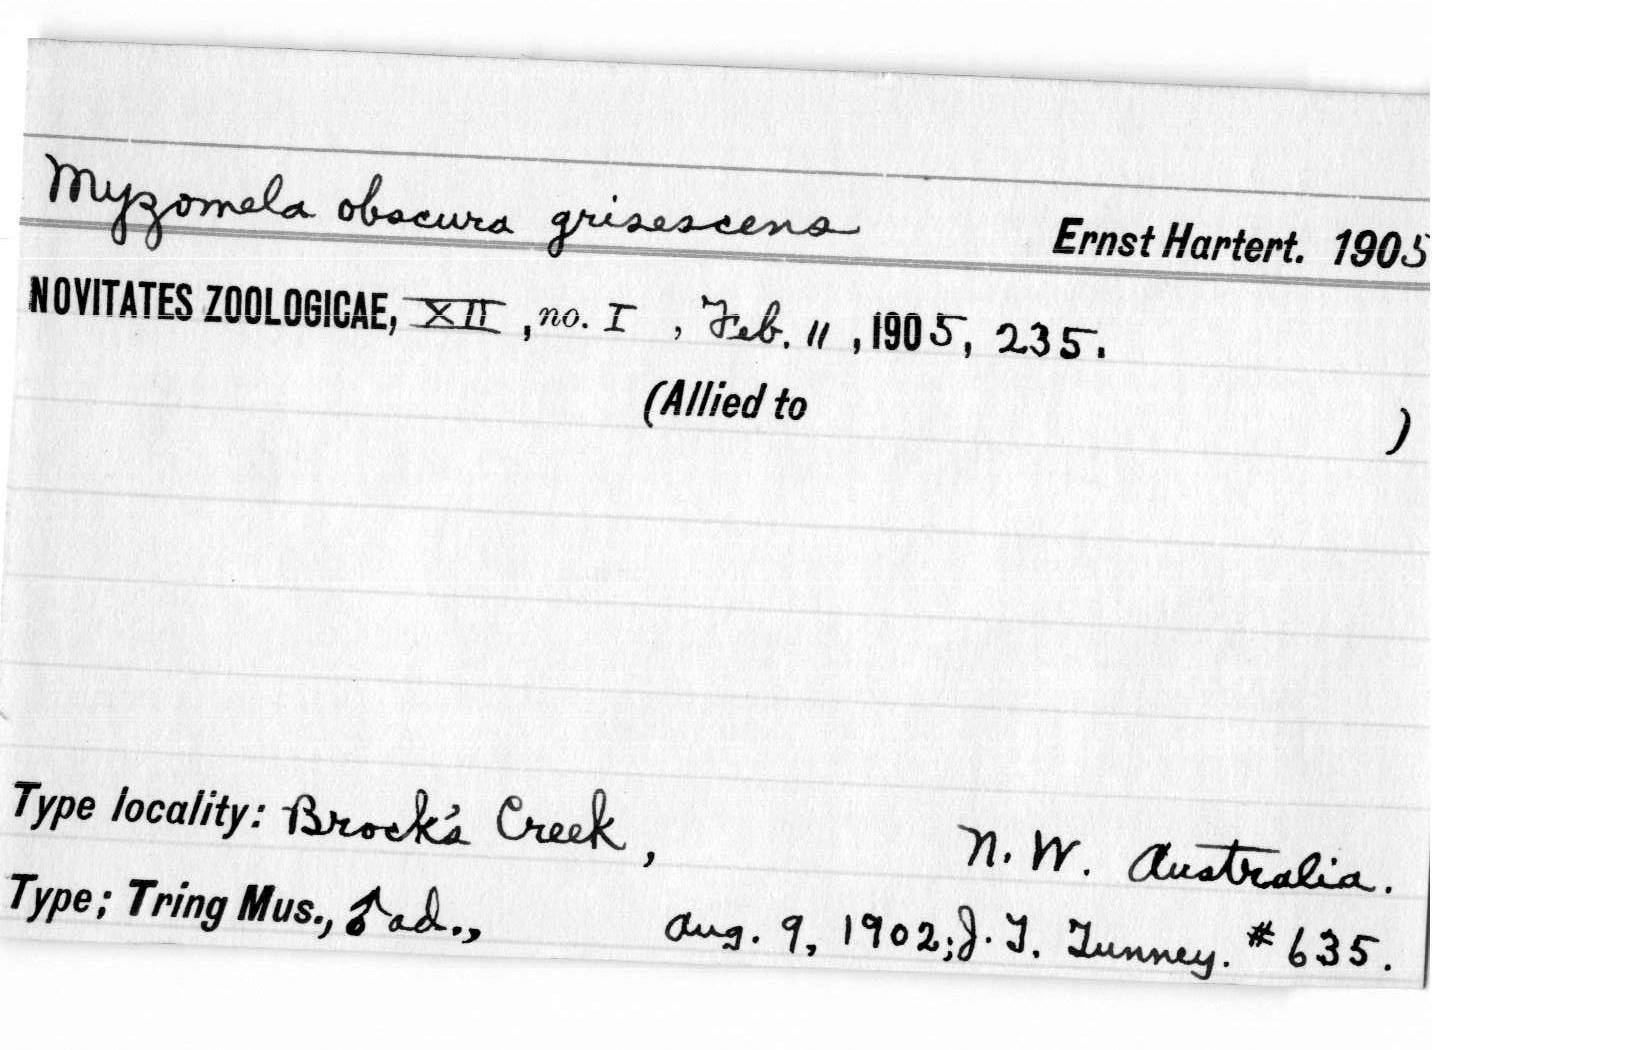 Myzomela obscura grisescens Ernst Hartert. 1905
NOVITATES ZOOLOGICAE, XII, no. I, Feb. 11, 1905, 235.
(Allied to )
Type locality: Brock's Creek, N. W. Australia.
Type; Tring Mus., ♂ ad., Aug. 9, 1902; J. T. Tunney. #635.